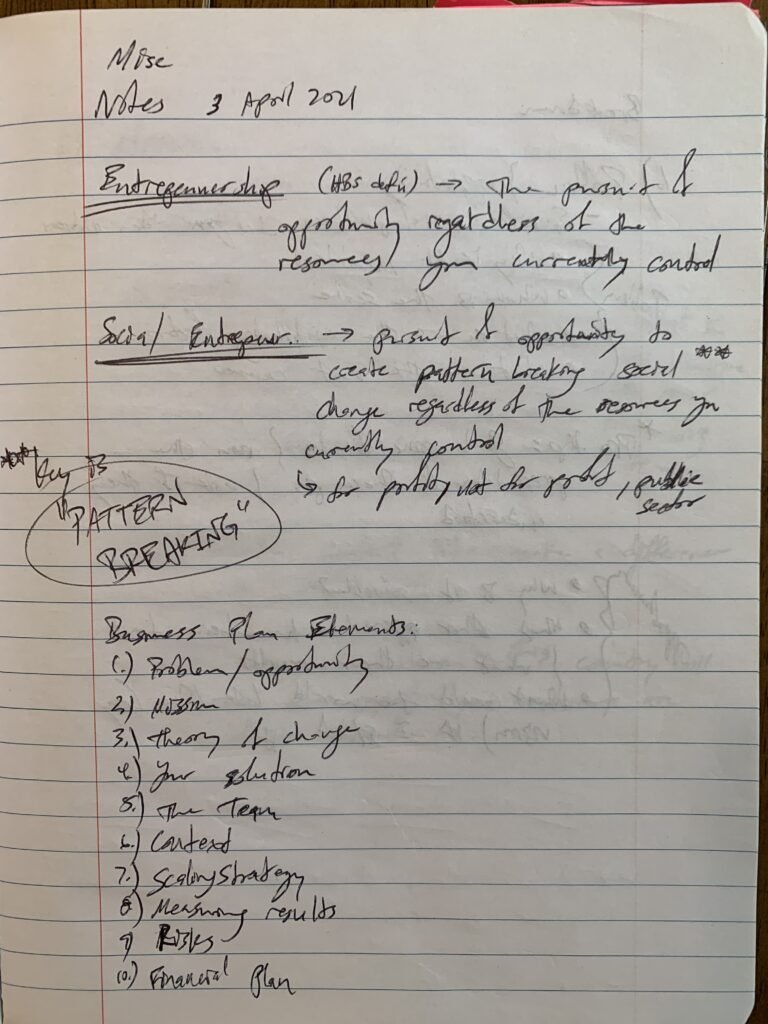 Misc
Notes 3 April 2021
Entrepennership (HBS defn) → The pursuit of
opportunity regardless of the
resources you currently control
Social Entrepeur.. → pursuit of opportunity to
create pattern breaking social ***
change regardless of the resources you
currently control
↳ for profit, not for profit, public
sector
*** Key is
"PATTERN
BREAKING"
Business Plan Elements:
(1.) Problem/opportunity
2.) Mission
3.) Theory of change
4.) Your solution
5.) The Team
6.) Context
7.) Scaling Strategy
8.) Measuring results
9) Risks
10.) Financial Plan